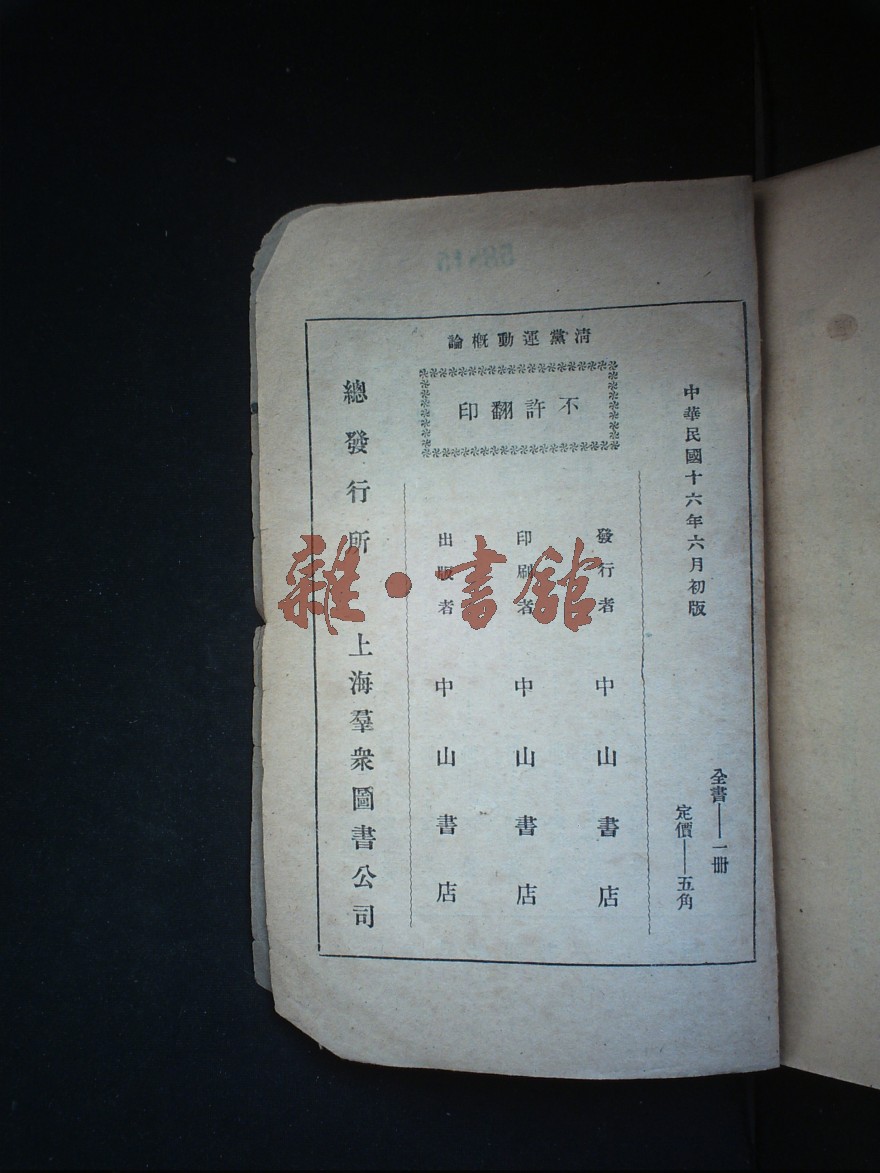 中華民國十六年六月初版
全書——一冊
定價——五角
清黨運動概論
不許翻印
發行者 中山書店
印刷者 中山書店
出版者 中山書店
總發行所 上海羣衆圖書公司
雜·書館